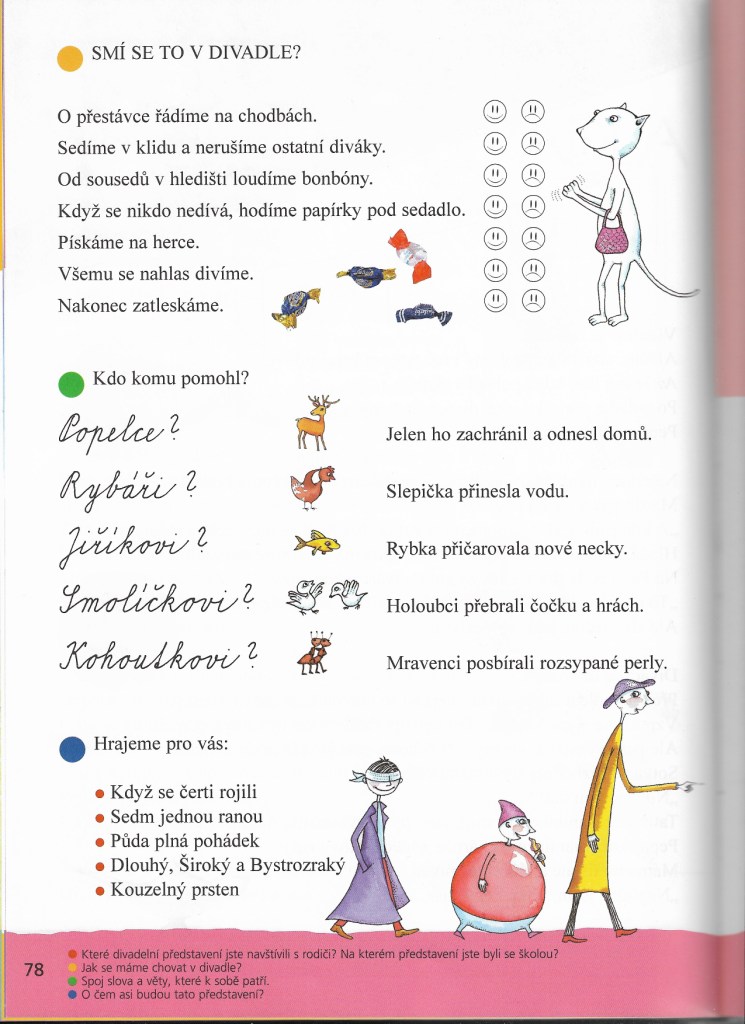 SMÍ SE TO V DIVADLE?
O přestávce řádíme na chodbách.
Sedíme v klidu a nerušíme ostatní diváky.
Od sousedů v hledišti loudíme bonbóny.
Když se nikdo nedívá, hodíme papírky pod sedadlo.
Pískáme na herce.
Všemu se nahlas divíme.
Nakonec zatleskáme.
Kdo komu pomohl?
Popelce?
Jelen ho zachránil a odnesl domů.
Rybáři?
Slepička přinesla vodu.
Jiříkovi?
Rybka přičarovala nové necky.
Smolíčkovi?
Holoubci přebrali čočku a hrách.
Kohoutkovi?
Mravenci posbírali rozsypané perly.
Hrajeme pro vás:
Když se čerti rojili
Sedm jednou ranou
Půda plná pohádek
Dlouhý, Široký a Bystrozraký
Kouzelný prsten
Které divadelní představení jste navštívili s rodiči? Na kterém představení jste byli se školou?
Jak se máme chovat v divadle?
Spoj slova a věty, které k sobě patří.
O čem asi budou tato představení?
78